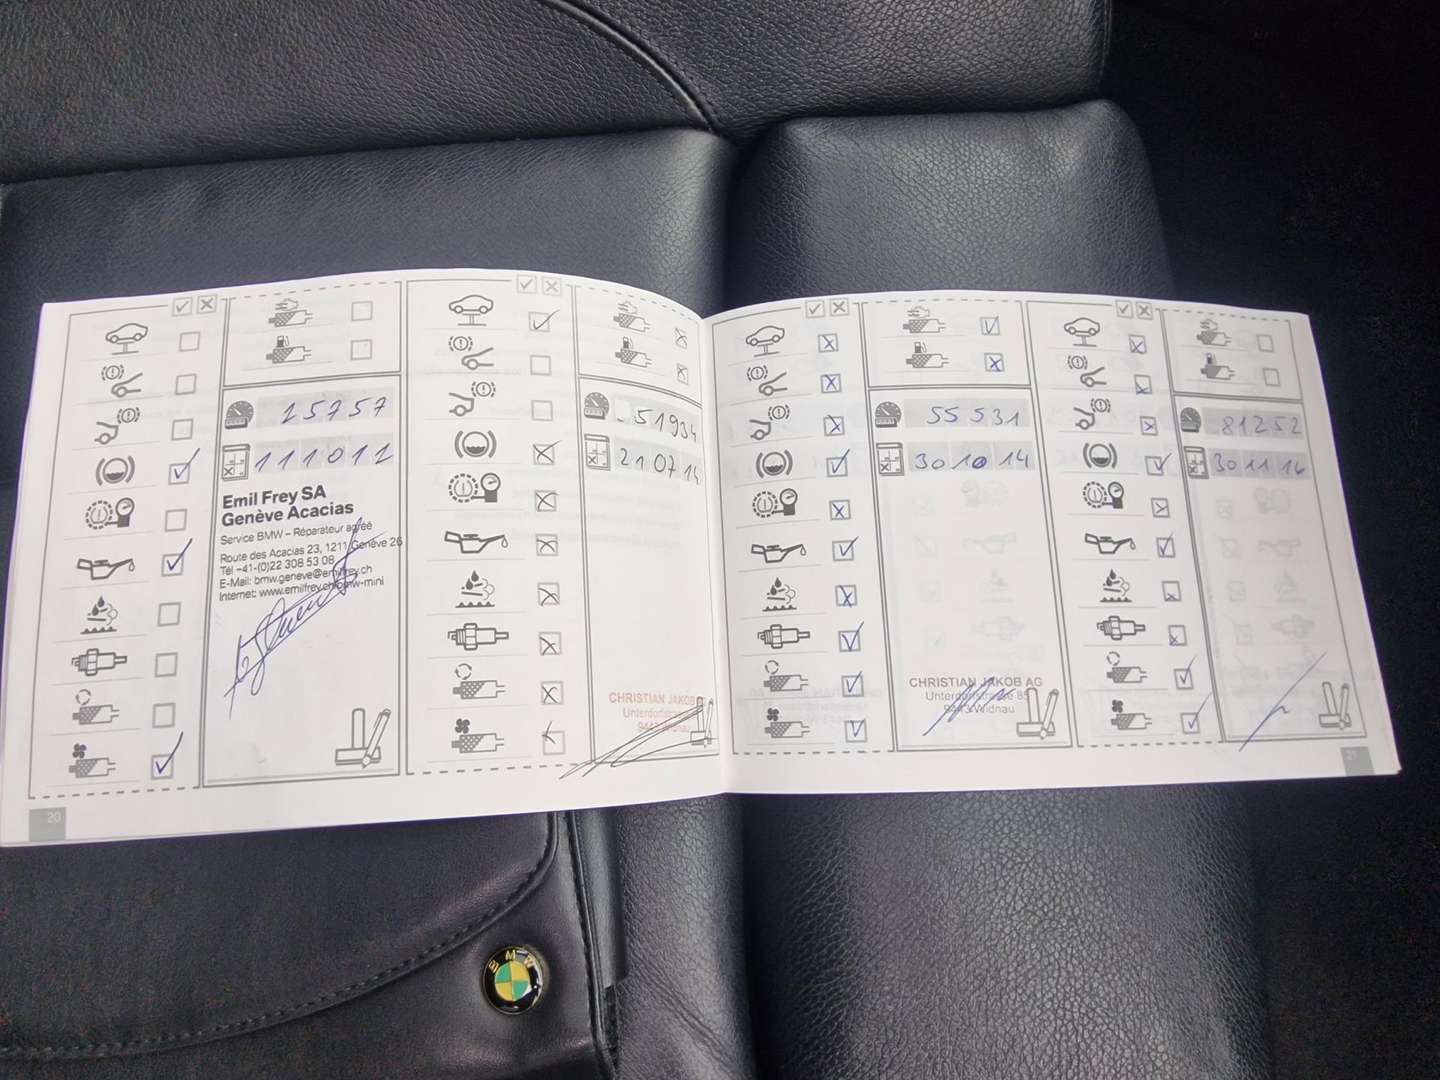 25757
111012
Emil Frey SA
Genève Acacias
Service BMW – Réparateur agréé
Route des Acacias 23, 1211 Genève 26
Tél +41-(0)22 308 53 08
E-Mail: bmw.geneve@emilfrey.ch
Internet: www.emilfrey.ch/bmw-mini
20
51934
210714
CHRISTIAN JAKOB AG
Unterdorfstrasse
9443 Widnau
55531
301014
CHRISTIAN JAKOB AG
Unterdorfstrasse 85
9443 Widnau
81252
301116
21
BMW